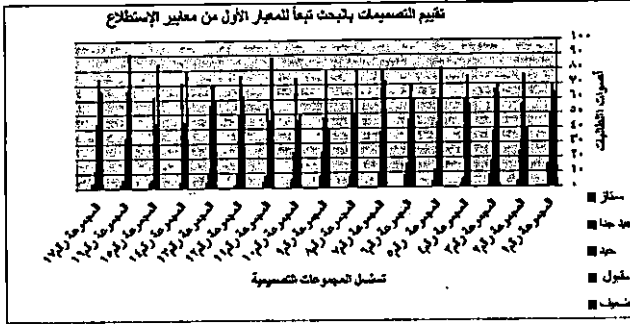 تقييم التصميمات بالبحث تبعاً للمعيار الأول من معايير الإستطلاع
١٠٠
٩٠
٨٠
٧٠
٦٠
٥٠
٤٠
٣٠
٢٠
١٠
٠
أصوات الطالبات
المجموعة رقم١
المجموعة رقم٢
المجموعة رقم٣
المجموعة رقم٤
المجموعة رقم٥
المجموعة رقم٦
المجموعة رقم٧
المجموعة رقم٨
المجموعة رقم٩
المجموعة رقم١٠
المجموعة رقم١١
المجموعة رقم١٢
المجموعة رقم١٣
المجموعة رقم١٤
المجموعة رقم١٥
المجموعة رقم١٦
المجموعة رقم١٧
تسلسل المجموعات التصميمية
ممتاز
جيد جدا
جيد
مقبول
ضعيف